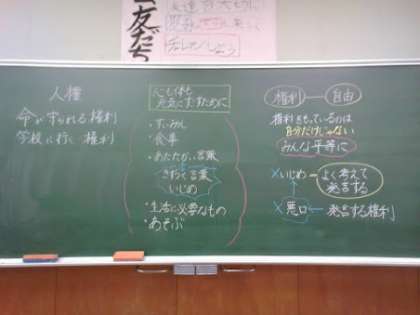 友だち
友達を大切に
人権
命が守られる権利
学校に行く権利
心も体も
元気にすごすために
・すいみん
・食事
・あたたかい言葉
きずつく言葉
いじめ
・生活に必要なもの
・あそぶ
権利 自由
権利をもっているのは
自分だけじゃない
みんな平等に
×いじめ よく考えて
発言する
×悪口 ← 発言する権利